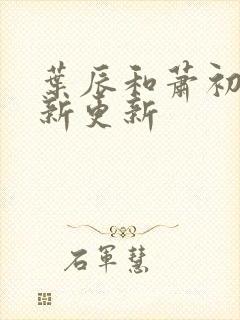 葉辰和蕭初
新更新
石軍慧